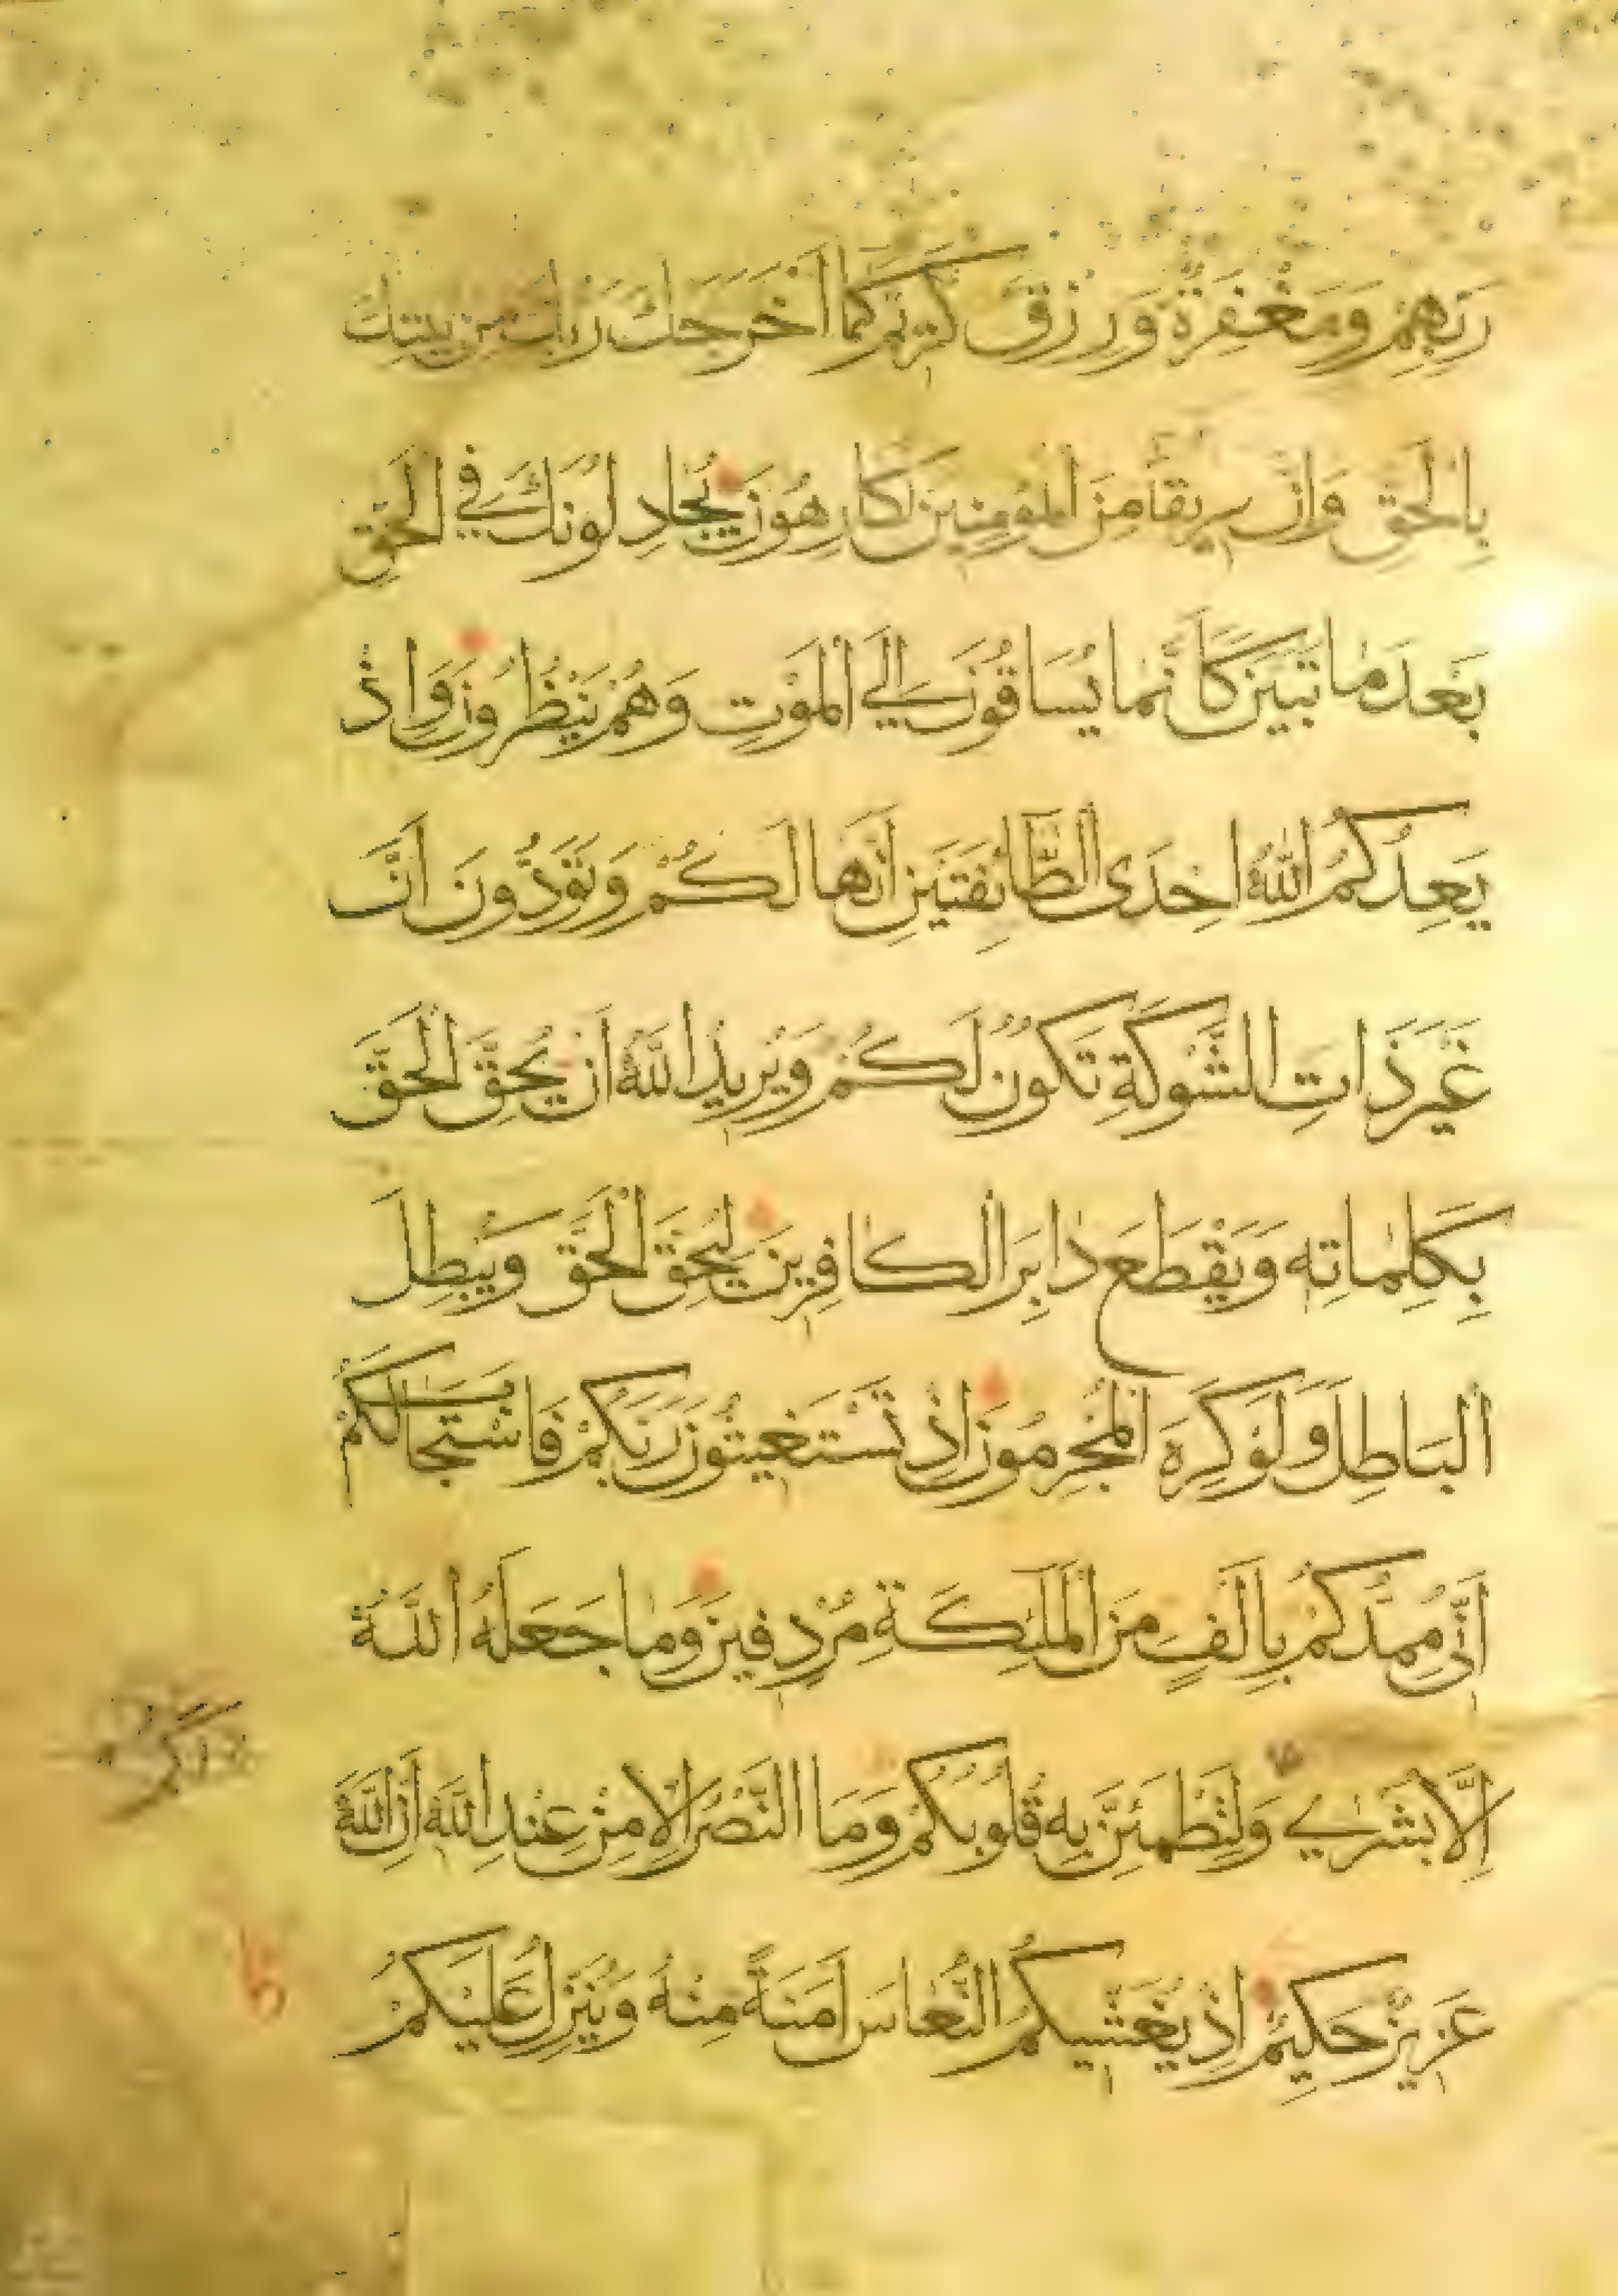 رَبِّهِمْ وَمَغْفِرَةٌ وَرِزْقٌ كَرِيمٌ كَمَا أَخْرَجَكَ رَبُّكَ مِنْ بَيْتِكَ
بِالْحَقِّ وَاِنَّ فَرِيقًا مِنَ الْمُؤْمِنِينَ لَكَارِهُونَ يُجَادِلُونَكَ فِي الْحَقِّ
بَعْدَ مَا تَبَيَّنَ كَاَنَّمَا يُسَاقُونَ اِلَي الْمَوْتِ وَهُمْ يَنْظُرُونَ وَاِذْ
يَعِدُكُمُ اللّٰهُ اِحْدَى الطَّائِفَتَيْنِ اَنَّهَا لَكُمْ وَتَوَدُّونَ اَنَّ
غَيْرَ ذَاتِ الشَّوْكَةِ تَكُونُ لَكُمْ وَيُرِيدُ اللّٰهُ اَنْ يُحِقَّ الْحَقَّ
بِكَلِمَاتِهِ وَيَقْطَعَ دَابِرَ الْكَافِرِينَ لِيُحِقَّ الْحَقَّ وَيُبْطِلَ
الْبَاطِلَ وَلَوْ كَرِهَ الْمُجْرِمُونَ اِذْ تَسْتَغِيثُونَ رَبَّكُمْ فَاسْتَجَابَ لَكُمْ
اَنِّي مُمِدُّكُمْ بِاَلْفٍ مِنَ الْمَلٰئِكَةِ مُرْدِفِينَ وَمَا جَعَلَهُ اللّٰهُ
اِلَّا بُشْرٰي وَلِتَطْمَئِنَّ بِهِ قُلُوبُكُمْ وَمَا النَّصْرُ اِلَّا مِنْ عِنْدِ اللّٰهِ اِنَّ اللّٰهَ
عَزِيزٌ حَكِيمٌ اِذْ يُغَشِّيكُمُ النُّعَاسَ اَمَنَةً مِنْهُ وَيُنَزِّلُ عَلَيْكُمْ